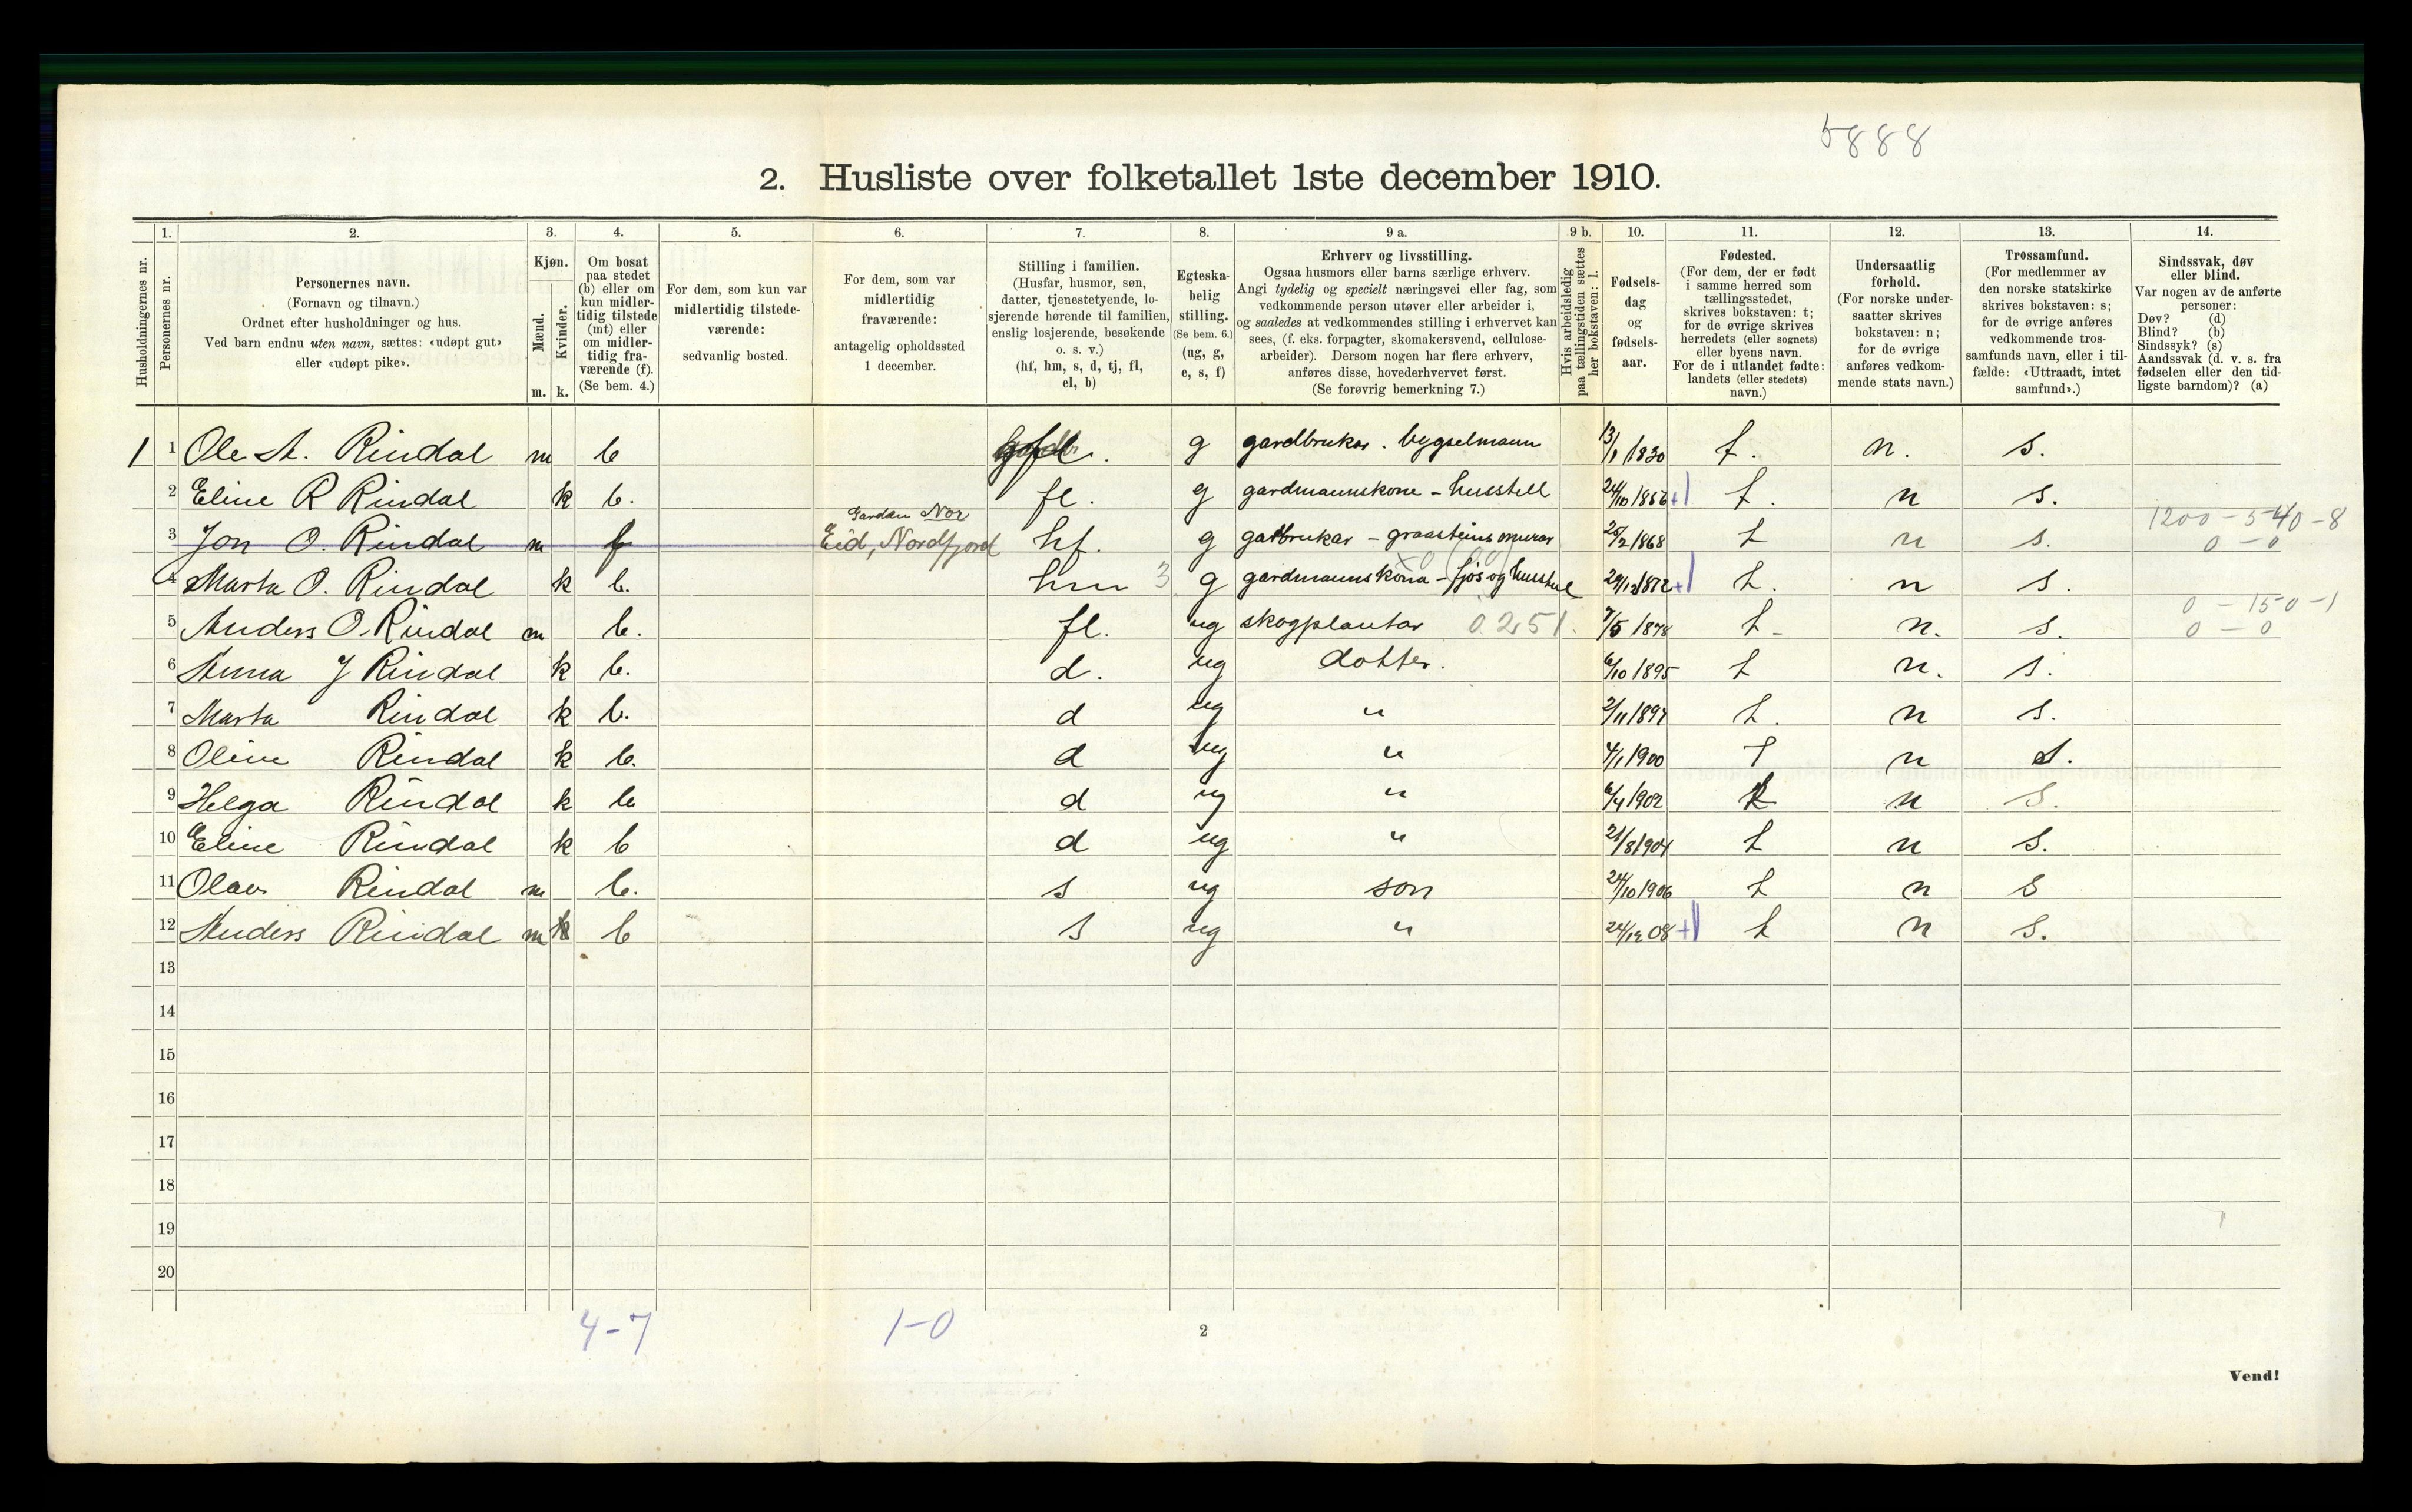 5888
2. Husliste over folketallet 1ste december 1910.
1. 2. 3. 4. 5. 6. 7. 8. 9 a. 9 b. 10. 11. 12. 13. 14.
Husholdningernes nr.
Personernes nr.
Personernes navn.
(Fornavn og tilnavn.)
Ordnet efter husholdninger og hus.
Ved barn endnu uten navn, sættes: «udøpt gut»
eller «udøpt pike».
Kjøn.
Mænd.
Kvinder.
m. k.
Om bosat
paa stedet
(b) eller om
kun midler-
tidig tilstede
(mt) eller
om midler-
tidig fra-
værende (f).
(Se bem. 4.)
For dem, som kun var
midlertidig tilstede-
værende:
sedvanlig bosted.
For dem, som var
midlertidig
fraværende:
antagelig opholdssted
1 december.
Stilling i familien.
(Husfar, husmor, søn,
datter, tjenestetyende, lo-
sjerende hørende til familien,
enslig losjerende, besøkende
o. s. v.)
(hf, hm, s, d, tj, fl,
el, b)
Egteska-
belig
stilling.
(Se bem. 6.)
(ug, g,
e, s, f)
Erhverv og livsstilling.
Ogsaa husmors eller barns særlige erhverv.
Angi tydelig og specielt næringsvei eller fag, som
vedkommende person utøver eller arbeider i,
og saaledes at vedkommendes stilling i erhvervet kan
sees, (f. eks. forpagter, skomakersvend, cellulose-
arbeider). Dersom nogen har flere erhverv,
anføres disse, hovederhvervet først.
(Se forøvrig bemerkning 7.)
Hvis arbeidsledig
paa tællingstiden sættes
her bokstaven: l.
Fødsels-
dag
og
fødsels-
aar.
Fødested.
(For dem, der er født
i samme herred som
tællingsstedet,
skrives bokstaven: t;
for de øvrige skrives
herredets (eller sognets)
eller byens navn.
For de i utlandet fødte:
landets (eller stedets)
navn.)
Undersaatlig
forhold.
(For norske under-
saatter skrives
bokstaven: n;
for de øvrige
anføres vedkom-
mende stats navn.)
Trossamfund.
(For medlemmer av
den norske statskirke
skrives bokstaven: s;
for de øvrige anføres
vedkommende tros-
samfunds navn, eller i til-
fælde: «Uttraadt, intet
samfund».)
Sindssvak, døv
eller blind.
Var nogen av de anførte
personer:
Døv? (d)
Blind? (b)
Sindssyk? (s)
Aandssvak (d. v. s. fra
fødselen eller den tid-
ligste barndom)? (a)
1 1 Ole A. Rindal m b fl. g gardbrukar. bygselmann 13/1 1830 t. n. s.
2 Eline R Rindal k b. fl. g gardmannskone - husstell 24/10 1856 +| t. n s.
Garden Nor 1200 - 540 - 8
3 Jon O. Rindal m f Eid, Nordfjord hf. g gardbrukar - graasteinsmurar 25/2 1868 t n s. 0 - 0
4 Marta O. Rindal k b. hm 3 g gardmannskona - fjøs og husstel 29/12 1872 +| t. n s.
0 - 150 - 1
5 Anders O. Rindal m b. fl. ug skogplantar 0.251. 7/5 1878 t - n. s. 0 - 0
6 Anna J Rindal k b. d. ug dotter. 6/10 1895 t n. s.
7 Marta Rindal k b. d ug " 2/11 1897 t. n s.
8 Oline Rindal k b. d ug " 4/1 1900 t n s.
9 Helga Rindal k b d ug " 6/4 1902 t n s.
10 Eline Rindal k b d ug " 21/8 1904 t n s.
11 Olav Rindal m b. s ug son 24/10 1906 t n s
12 Anders Rindal m b s ug " 24/12 08 +| t n s.
13
14
15
16
17
18
19
20
4-7 1-0
2
Vend!